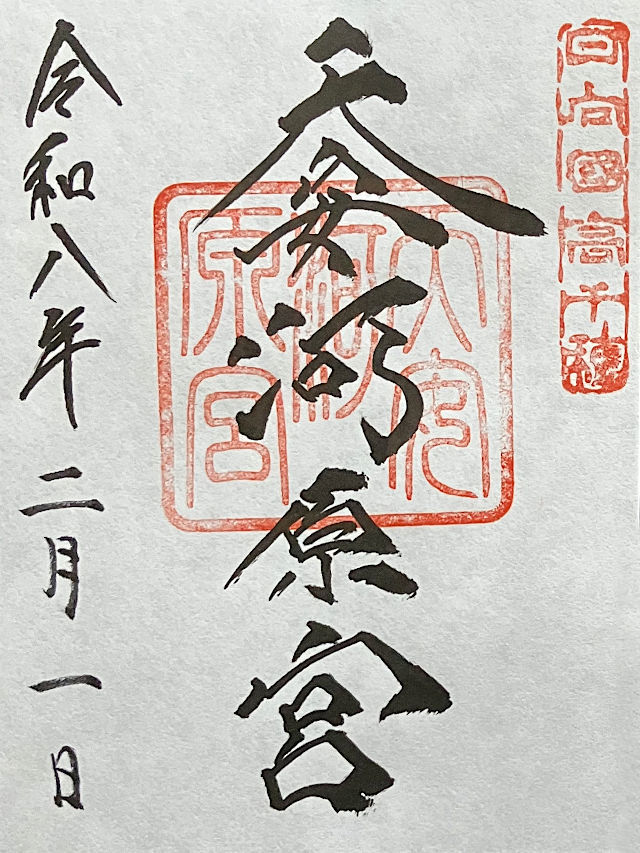 日向國高千穂
天安河原宮
天安河原宮
令和八年二月一日